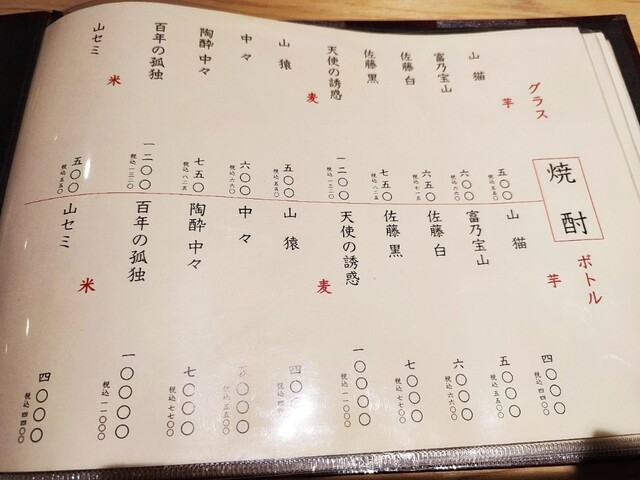 焼酎
グラス
芋
山猫 五〇〇
税込五五〇
富乃宝山 六〇〇
税込六六〇
佐藤 白 六五〇
税込七一五
佐藤 黒 七五〇
税込八二五
天使の誘惑 一二〇〇
税込一三二〇
麦
山猿 五〇〇
税込五五〇
中々 六〇〇
税込六六〇
陶酔 中々 七五〇
税込八二五
百年の孤独 一二〇〇
税込一三二〇
米
山セミ 五〇〇
税込五五〇
ボトル
芋
山猫 四〇〇〇
税込四四〇〇
富乃宝山 五〇〇〇
税込五五〇〇
佐藤 白 六〇〇〇
税込六六〇〇
佐藤 黒 七〇〇〇
税込七七〇〇
天使の誘惑 一〇〇〇〇
税込一一〇〇〇
麦
山猿 四〇〇〇
税込四四〇〇
中々
税込五五〇〇
陶酔 中々 七〇〇〇
税込七七〇〇
百年の孤独 一〇〇〇〇
税込一一〇〇〇
米
山セミ 四〇〇〇
税込四四〇〇